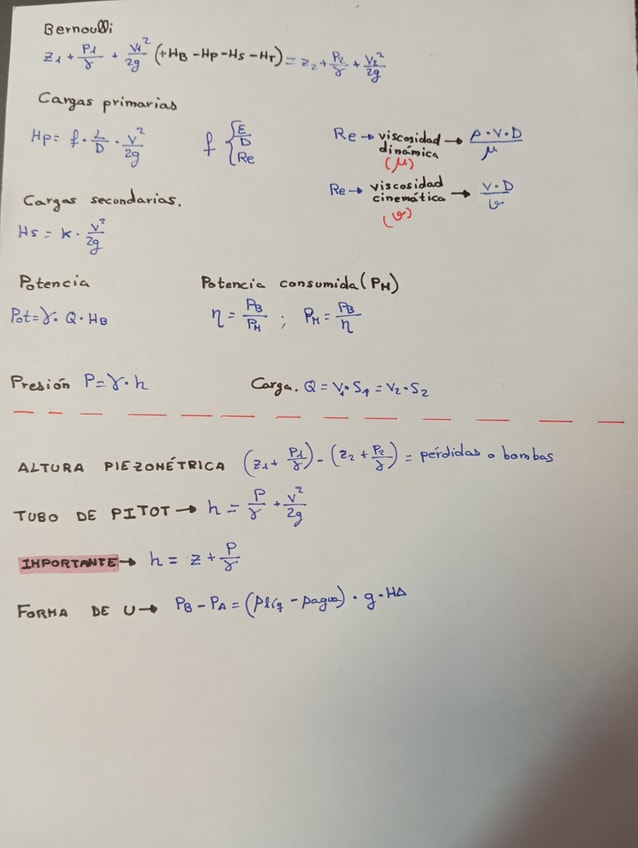 Bernoulli
z₁ + P₁/γ + V₁²/2g (+H_B - H_P - H_S - H_T) = z₂ + P₂/γ + V₂²/2g
Cargas primarias
H_P = f · L/D · V²/2g   f { ε/D   Re
Re → viscosidad dinámica (μ) → ρ·V·D/μ
Re → viscosidad cinemática (υ) → V·D/υ
Cargas secundarias.
H_S = k · V²/2g
Potencia
Pot = γ · Q · H_B
Potencia consumida (P_M)
η = P_B/P_M ; P_M = P_B/η
Presión P = γ · h
Carga. Q = V₁·S₁ = V₂·S₂
ALTURA PIEZOMÉTRICA (z₁ + P₁/γ) - (z₂ + P₂/γ) = pérdidas o bombas
TUBO DE PITOT → h = P/γ + V²/2g
IMPORTANTE → h = z + P/γ
FORMA DE U → P_B - P_A = (ρlíq - ρagua) · g · HΔ